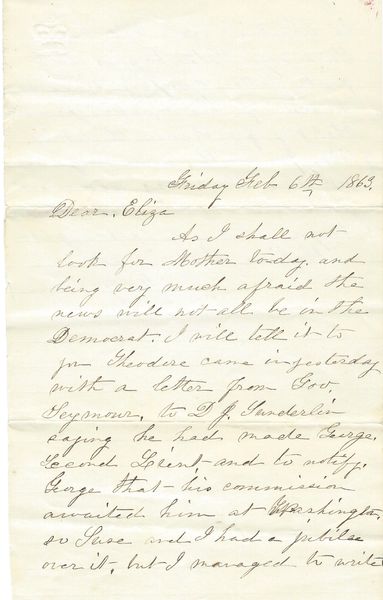 Friday Feb 6th 1863.
Dear Eliza
As I shall not
look for Mother today. and
being very much afraid the
news will not all be in the
Democrat. I will tell it to
you Theodore came in yesterday
with a letter from Gov.
Seymour, to D. J. Sunderlin
saying he had made George.
Second Lieut and to notify.
George that his commission
awaited him at Washington,
so Suse and I had a jubilee
over it, but I managed to write